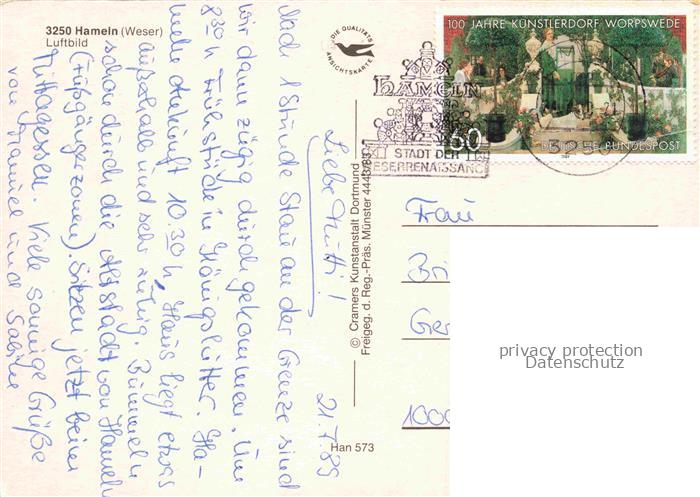 3250 Hameln (Weser)
Luftbild
DIE QUALITÄTS
ANSICHTSKARTE
100 JAHRE KÜNSTLERDORF WORPSWEDE
60
DEUTSCHE BUNDESPOST
HAMELN
STADT DER
WESERRENAISSANCE
21.7.89
Liebe Mutti!
Nach 1 Stunde Stau an der Grenze sind
wir dann zügig durchgekommen. Um
8.30 h Frühstück in Königslutter. Ha-
meln Ankunft 10.30 h, Haus liegt etwas
außerhalb und sehr ruhig. Bummeln
schon durch die Altstadt von Hameln
(Fußgängerzonen). Sitzen jetzt beim
Mittagessen. Viele sonnige Grüße
von Daniel und Sabine
© Cramers Kunstanstalt Dortmund
Freigeg. d. Reg.-Präs. Münster 4443/83
Han 573
Frau
1000
privacy protection
Datenschutz